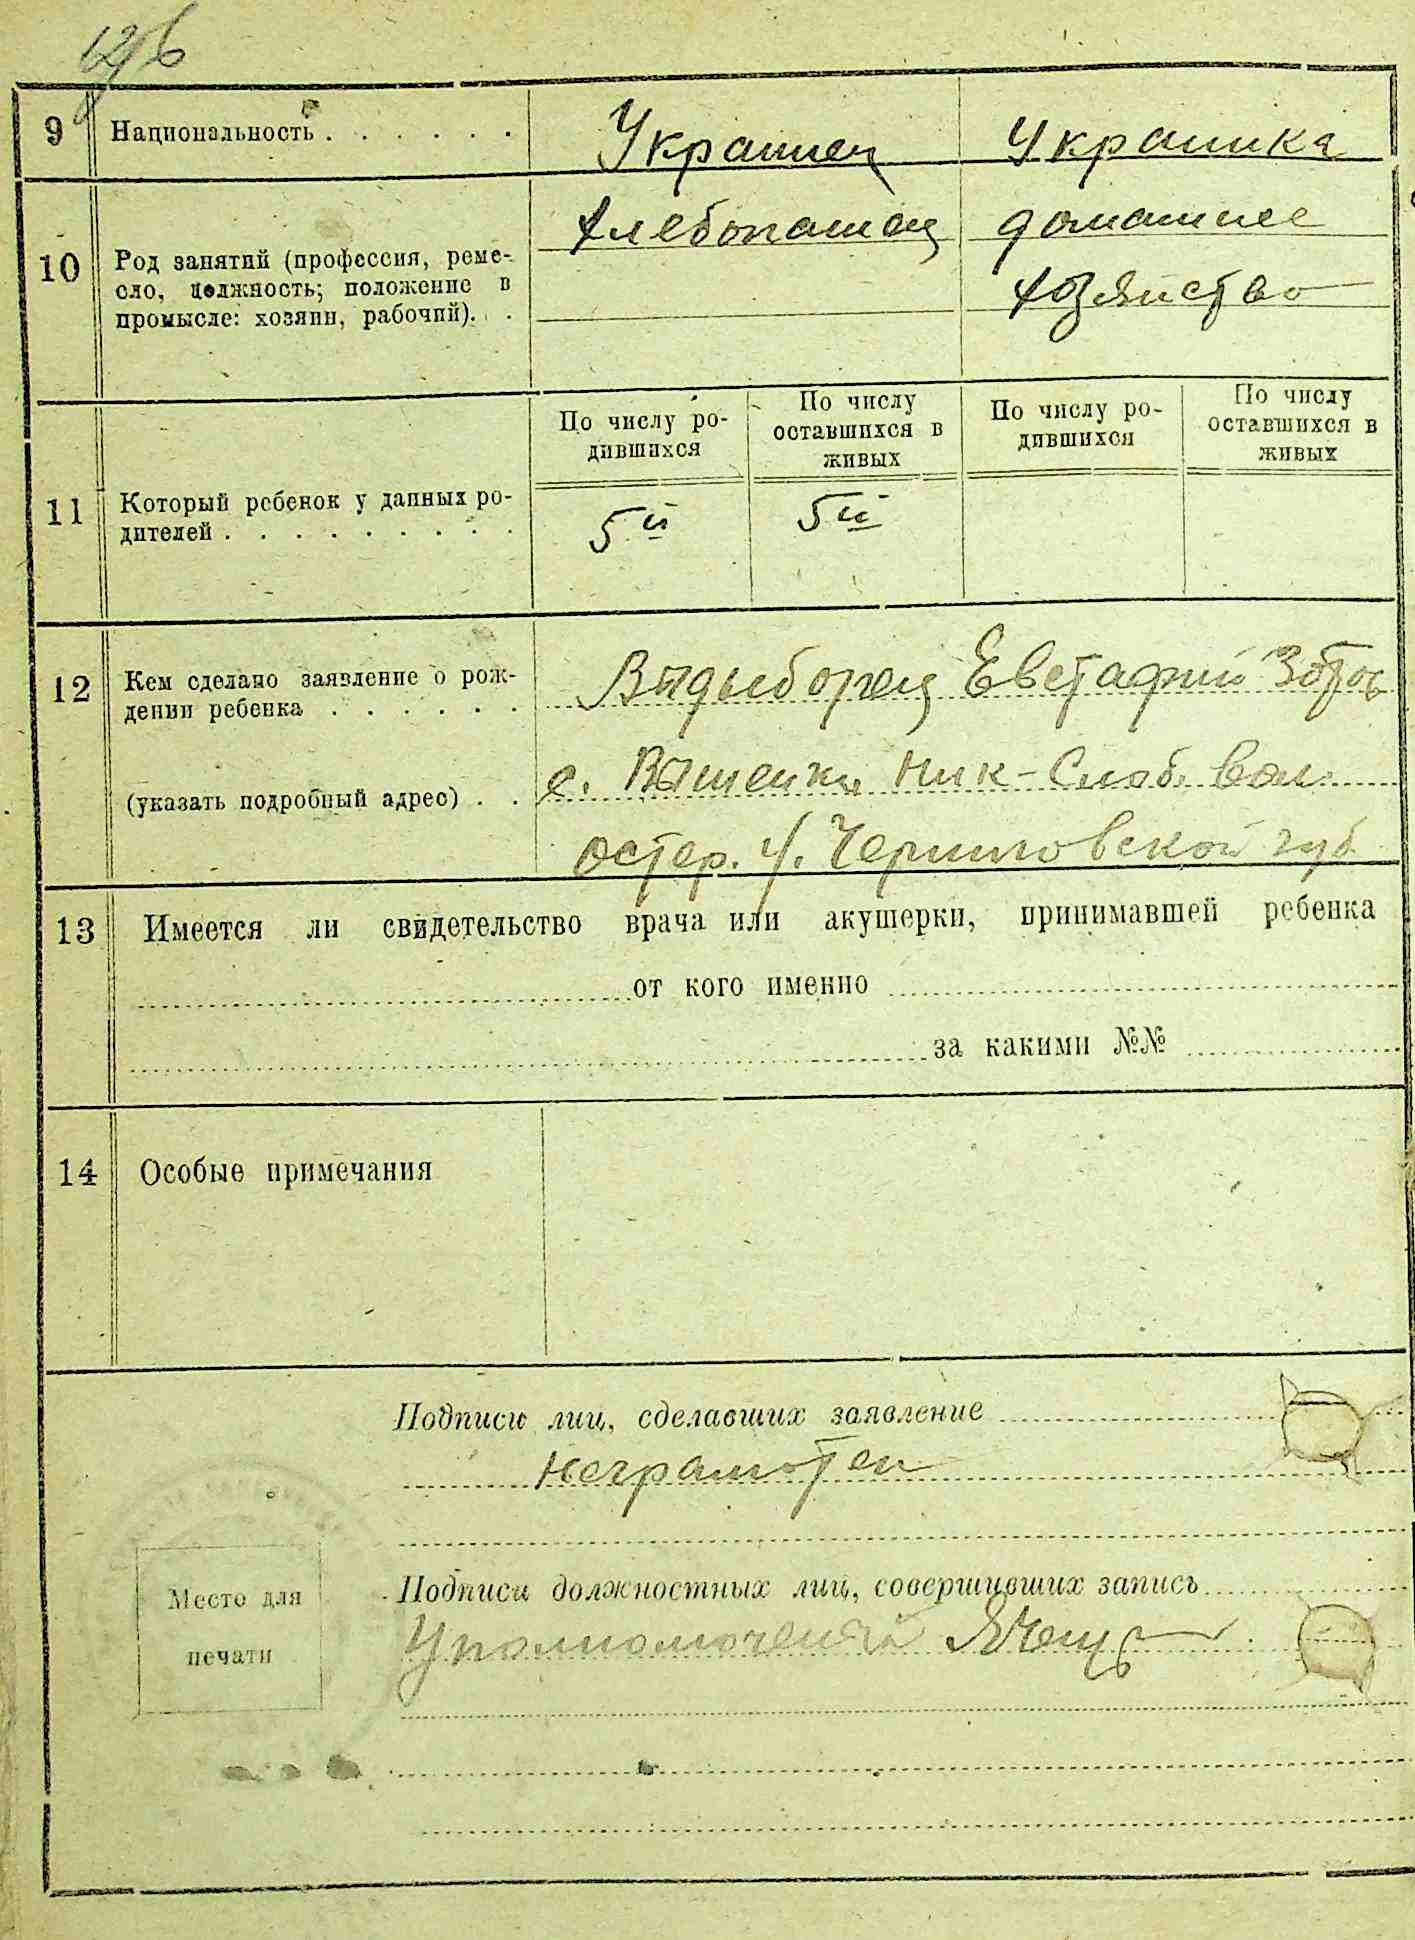 9 Национальность . . . . . . Украинец Украинка
10 Род занятий (профессия, реме-
сло, должность; положение в
промысле: хозяин, рабочий). .
Хлебопашец
домашнее
хозяйство
По числу ро-
дившихся
По числу
оставшихся в
живых
По числу ро-
дившихся
По числу
оставшихся в
живых
11 Который ребенок у данных ро-
дителей . . . . . . . . .
5й 5й
12 Кем сделано заявление о рож-
дении ребенка . . . . . .
(указать подробный адрес) . .
Выдыборец Евстафий
с. Вышенки Ник-Слоб. вол.
Остер. у. Черниговской губ.
13 Имеется ли свидетельство врача или акушерки, принимавшей ребенка
от кого именно
за какими №№
14 Особые примечания
Подписи лиц, сделавших заявление
неграмотен
Место для
печати
Подписи должностных лиц, совершивших запись
Уполномоченый